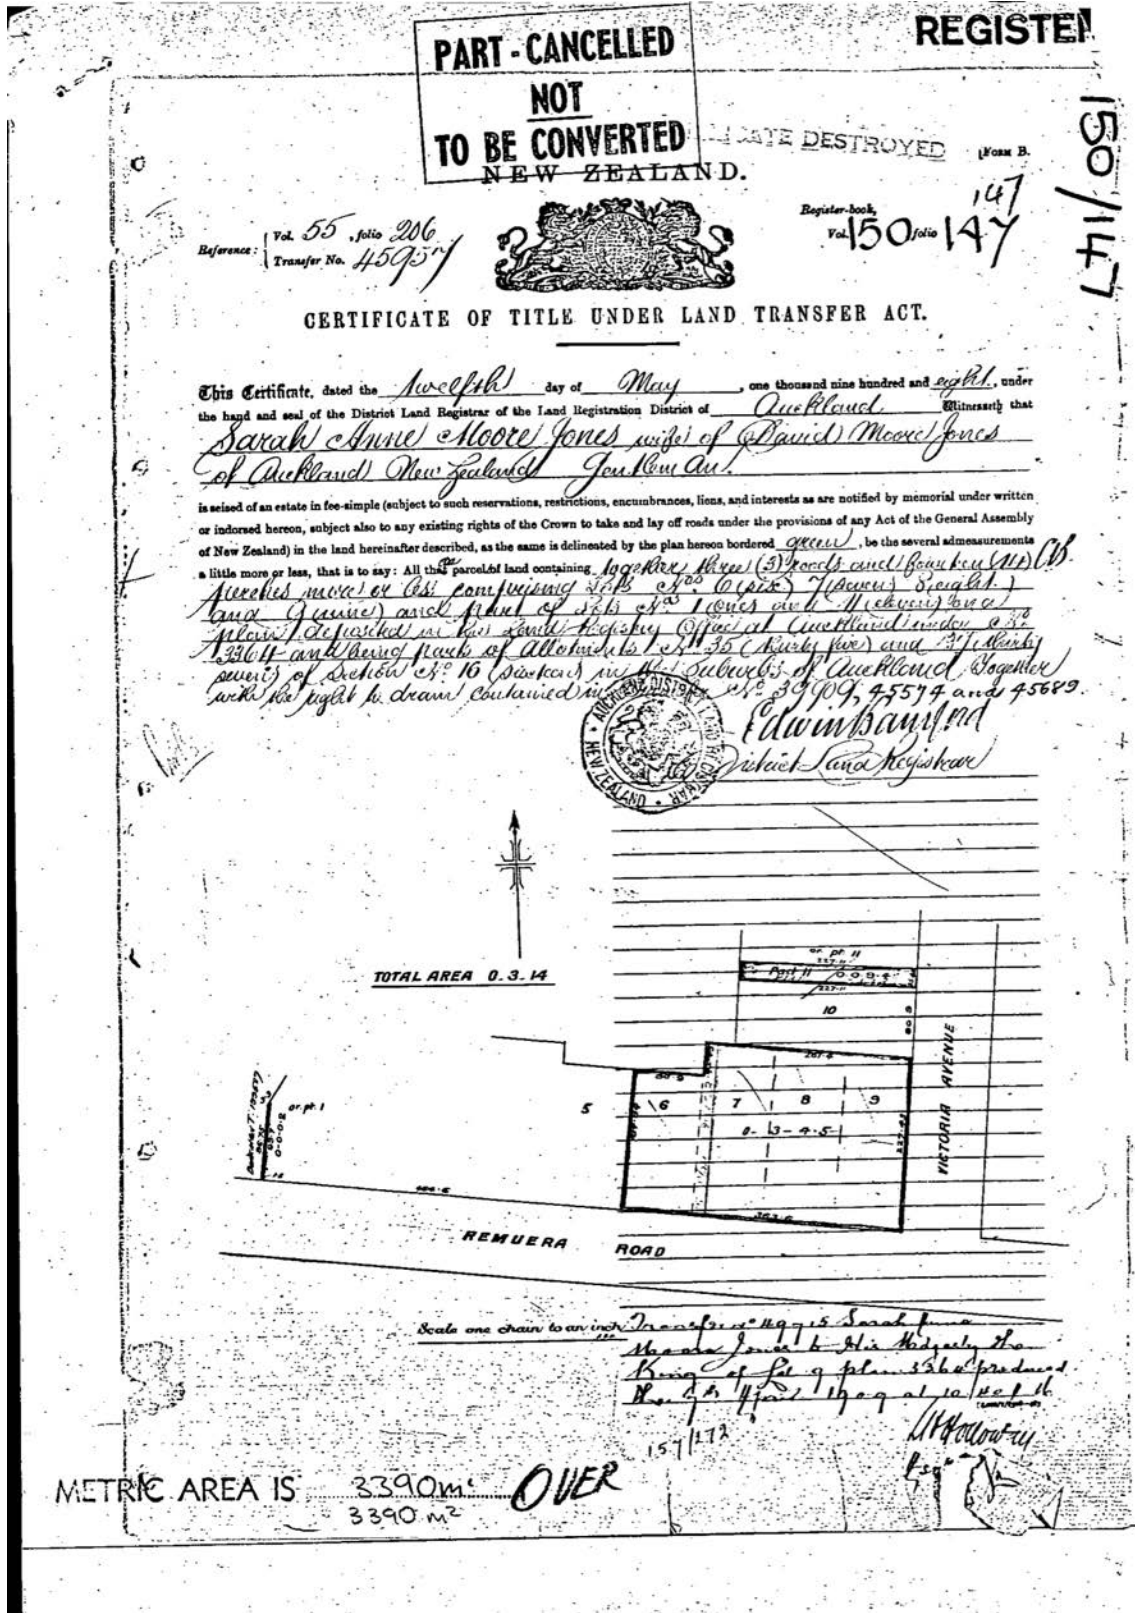 PART - CANCELLED
NOT
TO BE CONVERTED
REGISTER
DESTROYED
[FORM B.
NEW ZEALAND.
150/147
147
Reference: Vol. 55, folio 206
Transfer No. 45957
Register-book,
Vol. 150 folio 147
CERTIFICATE OF TITLE UNDER LAND TRANSFER ACT.
This Certificate, dated the twelfth day of May, one thousand nine hundred and eight, under
the hand and seal of the District Land Registrar of the Land Registration District of Auckland Witnesseth that
Sarah Anne Moore Jones wife of David Moore Jones
of Auckland New Zealand Gentleman
is seised of an estate in fee-simple (subject to such reservations, restrictions, encumbrances, liens, and interests as are notified by memorial under written
or indorsed hereon, subject also to any existing rights of the Crown to take and lay off roads under the provisions of any Act of the General Assembly
of New Zealand) in the land hereinafter described, as the same is delineated by the plan hereon bordered green, be the several admeasurements
a little more or less, that is to say: All the parcels of land containing together three (3) roods and fourteen (14)
perches more or less comprising Lots Nos 6 (six) 7 (seven) 8 (eight)
and 9 (nine) and part of Lots Nos 1 (one) and 11 (eleven) on a
plan deposited in the Land Registry Office at Auckland under No
3364 and being parts of Allotments No 35 (thirty five) and 37 (thirty
seven) of Section No 16 (sixteen) in the Suburbs of Auckland Together
with the right to drain contained in Nº 39909, 45574 and 45689.
Edwin Bamford
District Land Registrar
AUCKLAND DISTRICT LAND REGISTRAR
NEW ZEALAND
TOTAL AREA 0.3.14
or. pt. 11
227.11
Part 11
227.11
10
VICTORIA AVENUE
or. pt. 1
0-0-0-2
5
6
7
8
9
0-3-4-5
REMUERA ROAD
Scale one chain to an inch
Transfer No 49715 Sarah Anne
Moore Jones to His Majesty the
King of Lot 9 plan 3364 produced
the 7th April 1909 at 10
157/272
METRIC AREA IS 3390m²
3390 m²
OVER